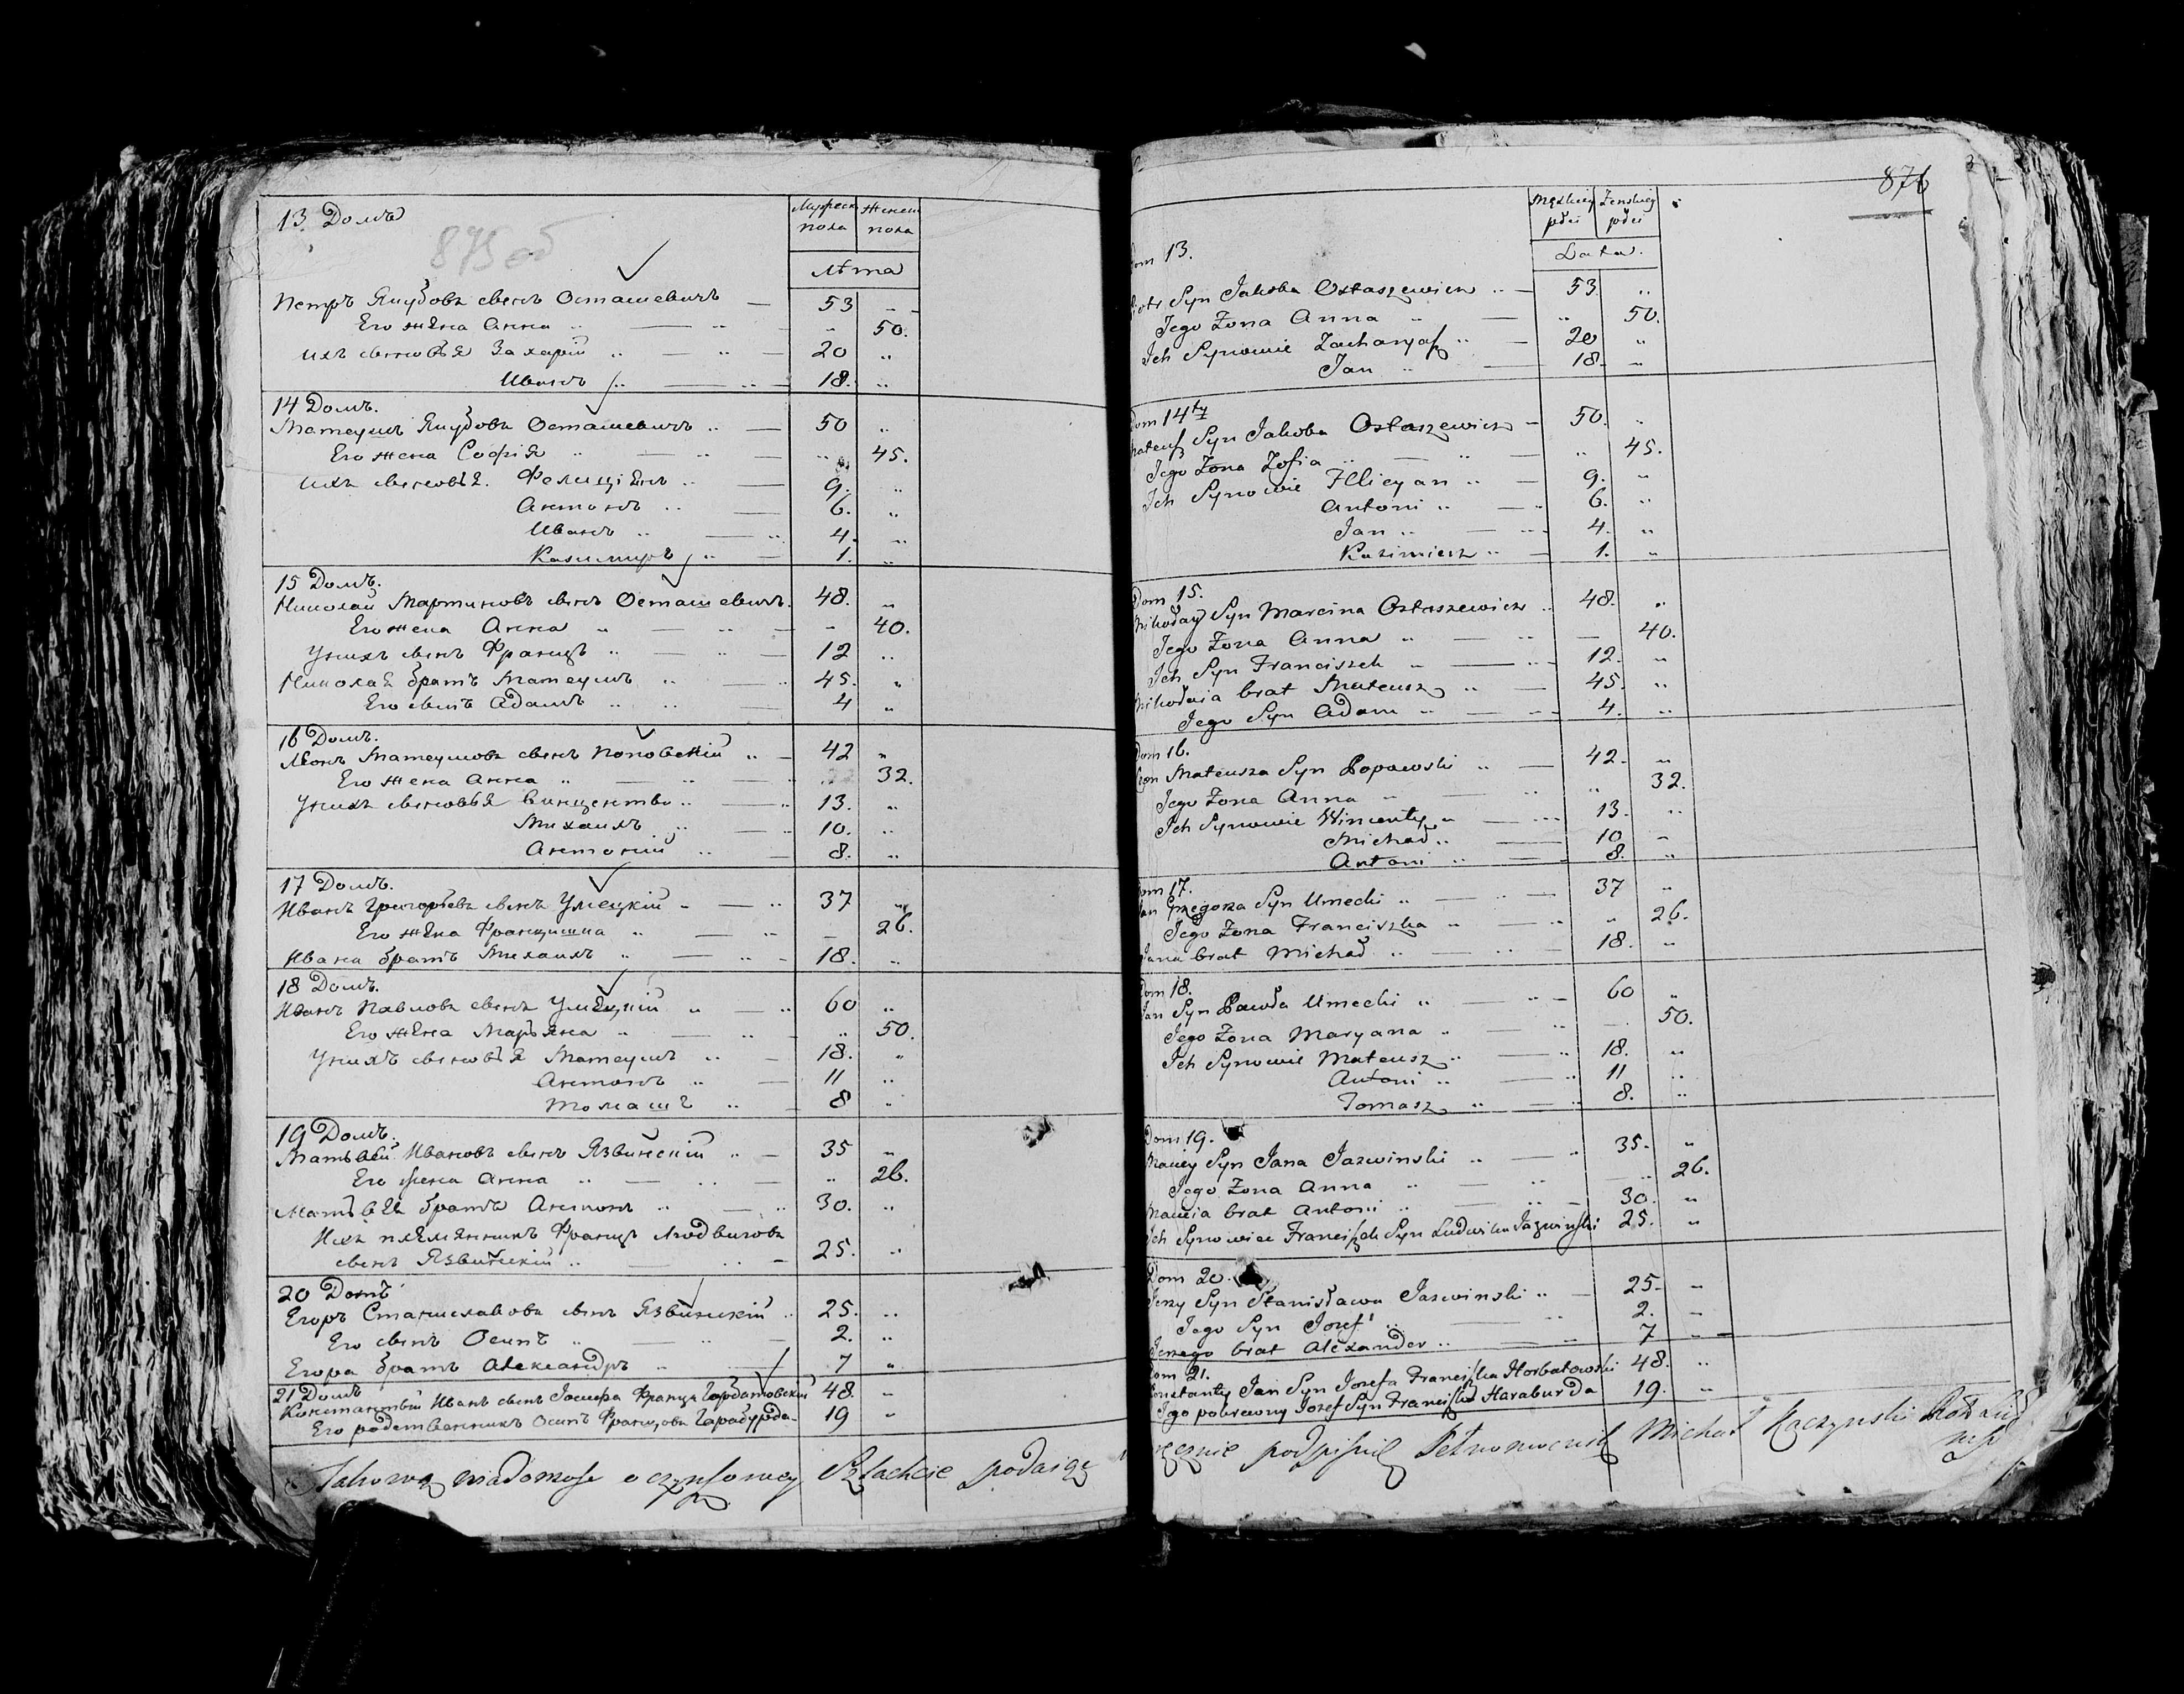 13 Домъ
Мужеск. Женск.
пола пола
875 об
Лѣта
Петръ Якубовъ сынъ Осташевичъ 53 „
Его жена Анна „ 50.
ихъ сыновья Захарій 20 „
Иванъ 18. „
14 Домъ.
Матеушъ Якубовъ Осташевичъ 50 „
Его жена Софія „ 45.
ихъ сыновья. Фелиціянъ 9. „
Антонъ 6. „
Иванъ 4. „
Казимиръ 1. „
15 Домъ.
Николай Мартиновъ сынъ Осташевичъ. 48. „
Его жена Анна „ 40.
У нихъ сынъ Францъ 12 „
Николая братъ Матеушъ 45. „
Его сынъ Адамъ 4 „
16 Домъ.
Леонъ Матеушовъ сынъ Поповскій 42 „
Его жена Анна „ 32.
У нихъ сыновья Винценты 13. „
Михаилъ 10. „
Антоній 8. „
17 Домъ.
Иванъ Григорьевъ сынъ Умецкій 37 „
Его жена Францишка „ 26.
Ивана братъ Михаилъ 18. „
18 Домъ.
Иванъ Павловъ сынъ Умецкій 60 „
Его жена Марьяна „ 50.
У нихъ сыновья Матеушъ 18. „
Антонъ 11 „
Томашъ 8 „
19 Домъ.
Матвѣй Ивановъ сынъ Язвинскій 35 „
Его жена Анна „ 26.
Матвѣя братъ Антонъ 30. „
Ихъ племянникъ Францъ Людвиговъ
сынъ Язвинскій 25. „
20 Домъ
Егоръ Станиславовъ сынъ Язвинскій 25. „
Его сынъ Осипъ 2. „
Егора братъ Александръ 7 „
21 Домъ
Константый Иванъ сынъ Іосифа Франца Горбатовскій 48. „
Его родственникъ Осипъ Францовъ Гарабурда 19 „
Takową wiadomość o czynszowey Szlachcie podaiąc
876
Męzkiey Żenskiey
płci płci
Dom 13.
Lata.
Piotr Syn Jakoba Ostaszewicz 53. „
Jego Żona Anna „ 50.
Ich Synowie Zacharyasz 20 „
Jan 18. „
Dom 14ty
Mateusz Syn Jakoba Ostaszewicz 50. „
Jego Żona Zofia „ 45.
Ich Synowie Felicyan 9. „
Antoni 6. „
Jan 4. „
Kazimierz 1. „
Dom 15.
Mikołay Syn Marcina Ostaszewicz 48. „
Jego Żona Anna — 40.
Ich Syn Franciszek 12. „
Mikołaia brat Mateusz 45. „
Jego Syn Adam 4. „
Dom 16.
Leon Mateusza Syn Popowski 42. „
Jego Żona Anna „ 32.
Ich Synowie Wincenty 13. „
Michał 10 „
Antoni 8. „
Dom 17.
Jan Grzegorza Syn Umecki 37 „
Jego Żona Franciszka „ 26.
Jana brat Michał 18. „
Dom 18.
Jan Syn Pawła Umecki 60 „
Jego Żona Maryana — 50.
Ich Synowie Mateusz 18. „
Antoni 11 „
Tomasz 8. „
Dom 19.
Maciey Syn Jana Jazwinski 35. „
Jego Żona Anna — 26.
Macieia brat Antoni 30. „
Ich Synowiec Franciszek Syn Ludwika Jazwinski 25. „
Dom 20.
Jerzy Syn Stanisława Jazwinski 25. „
Jego Syn Jozef 2. „
Jerzego brat Alexander 7 „
Dom 21.
Konstanty Jan Syn Jozefa Franciszka Horbatowski 48. „
Jego pokrewny Jozef Syn Franciszka Haraburda 19. „
ręcznie podpisuię Pełnomocnik Michał Kaczynski
mp